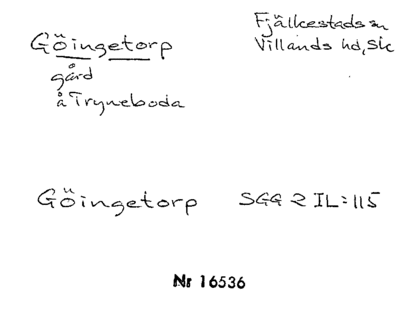 Göingetorp
gård
å Tryneboda
Fjälkestads sn
Villands hd, Sk
Göingetorp SGG 2 IL:115
Nr 16536